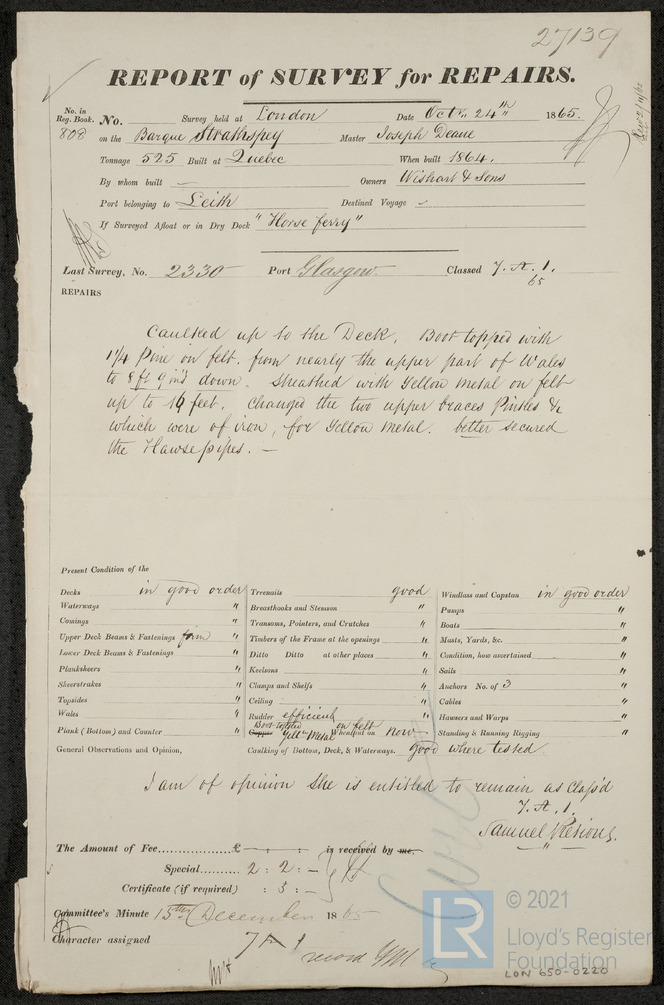 27139
REPORT of SURVEY for REPAIRS.
No. in Reg. Book. No. Survey held at London Date Octr. 24th 1865.
808 on the Barque Strathspey Master Joseph Deane
Tonnage 525 Built at Quebec When built 1864.
By whom built — Owners Wishart & Sons
Port belonging to Leith Destined Voyage –
If Surveyed Afloat or in Dry Dock "Horse ferry"
Last Survey, No. 2330 Port Glasgow Classed 7. A. 1.
65
REPAIRS
Caulked up to the Deck. Boot topped with
1 1/4 Pine on felt. from nearly the upper part of Wales
to 8 ft 9 in's down. Sheathed with Yellow Metal on felt
up to 16 feet. Changed the two upper braces Pintles &c
which were of iron, for Yellow Metal. better secured
the Hawse pipes. —
Present Condition of the
Decks in good order Treenails good Windlass and Capstan in good order
Waterways " Breasthooks and Stemson " Pumps "
Comings " Transoms, Pointers, and Crutches " Boats "
Upper Deck Beams & Fastenings firm " Timbers of the Frame at the openings " Masts, Yards, &c. "
Lower Deck Beams & Fastenings " Ditto Ditto at other places " Condition, how ascertained "
Planksheers " Keelsons " Sails "
Sheerstrakes " Clamps and Shelfs " Anchors No. of 3 "
Topsides " Ceiling " Cables "
Wales " Rudder efficient Hawsers and Warps "
Boot topped on felt
Plank (Bottom) and Counter " Copper Yellw Metal When put on now Standing & Running Rigging "
General Observations and Opinion, Caulking of Bottom, Deck, & Waterways. good where tested
I am of opinion she is entitled to remain as Class'd
7. A. 1.
Samuel
The Amount of Fee £ — : — : is received by me.
Special 2 : 2 : —
Certificate (if required) : 5 : —
Committee's Minute 15th December 1865
Character assigned 7 A 1
record
© 2021
LR
Lloyd's Register
Foundation
LON 650-0220